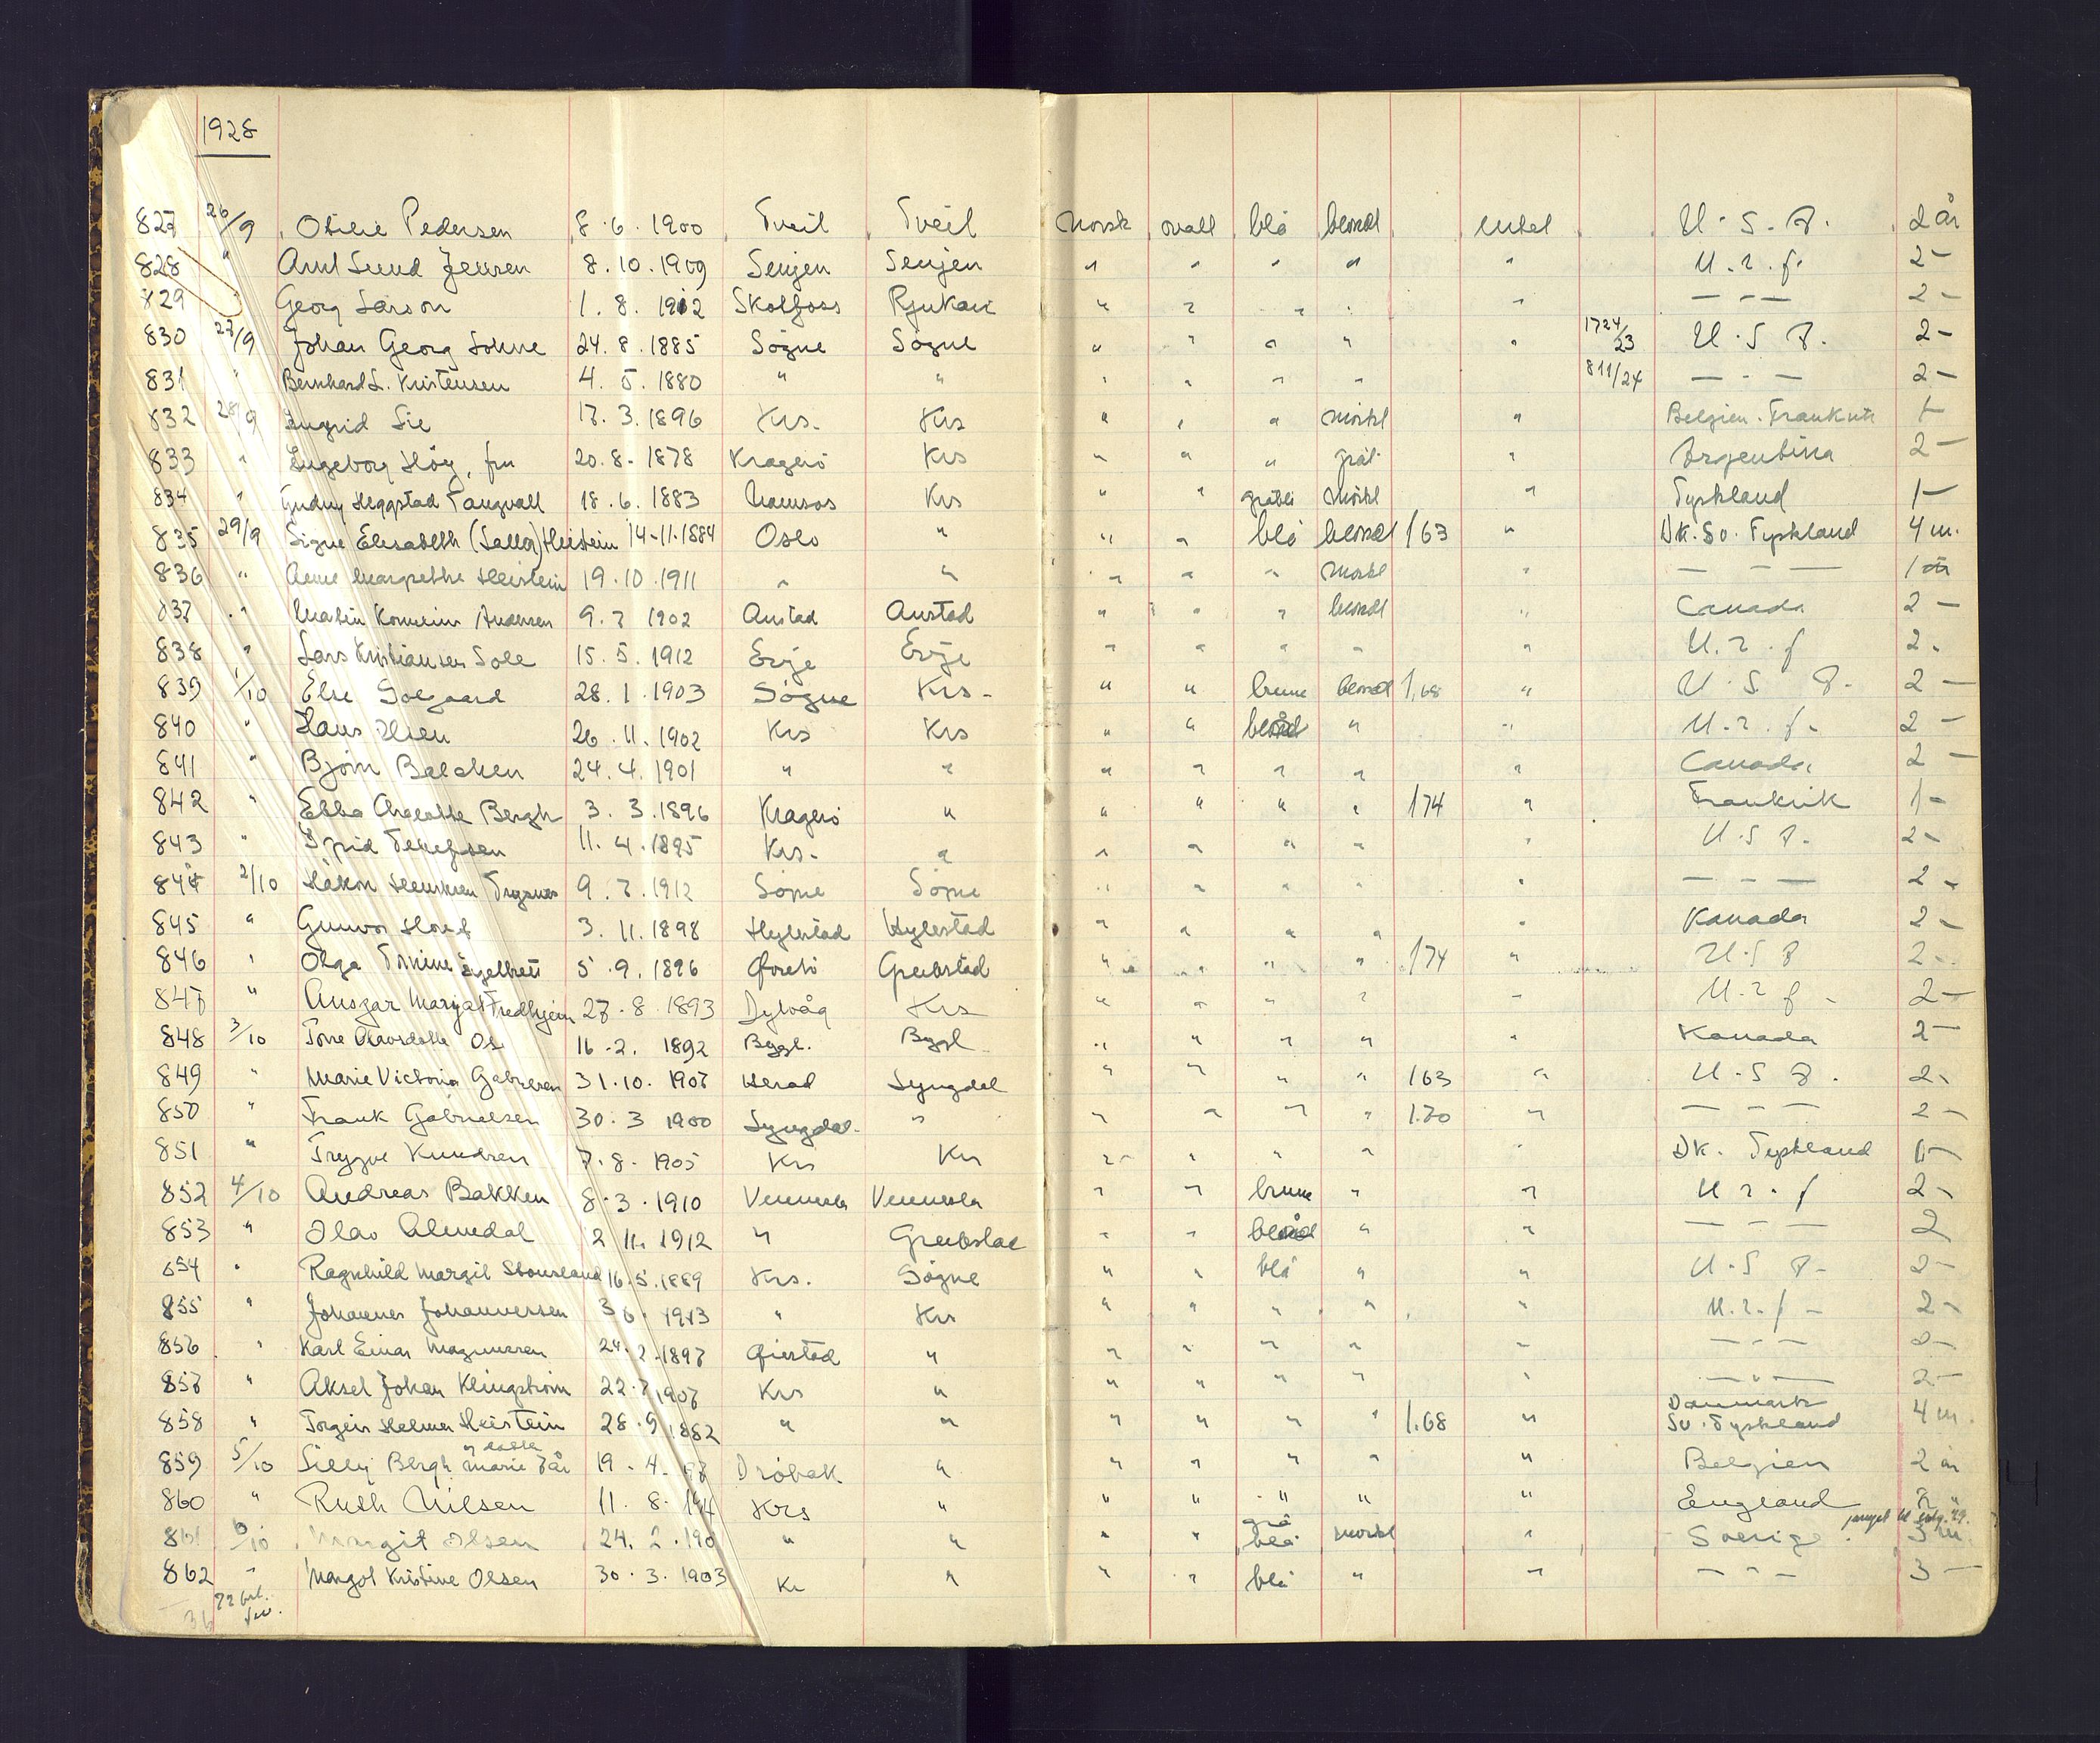 1928
827 26/9 Otilie Pedersen 8.6.1900 Tveit Tveit Norsk ovalt blå blondt enkel U.S.A. 2 år
828 " Arnt Lund Jensen 8.10.1909 Senjen Senjen " " " " " U.r.f. 2 –
829 Georg Larson 1.8.1912 Skotfoss Rjukan " " " " " – – – 2 –
830 27/9 Johan Georg Sohne 24.8.1885 Søgne Søgne " " " " " 1724/23 U.S.A. 2 –
831 " Bernhard S. Kristensen 4.5.1880 " " " " " " 811/24 – – – 2 –
832 28/9 Ingrid Lie 17.3.1896 Krs. Krs " " " mørkt " Belgien. Frankrik 1 –
833 " Ingeborg Høy, fru 20.8.1878 Kragerö Krs " " " grått " Argentina 2 –
834 " Gudny Heggstad Tangvall 18.6.1883 Namsos Krs " " gråblå mørkt " Tyskland 1 –
835 29/9 Signe Elisabeth (Salla) Heistein 14.11.1884 Oslo " " " blå blondt 163 " DK. Sv. Tyskland 4 m.
836 " Anne Margrethe Heistein 19.10.1911 " " " " " mørkt " – – – 1 år
837 " Martin Andersen 9.7.1902 Austad Austad " " " blondt " Canada 2 –
838 " Lars Kristiansen 15.5.1912 Evje Evje " " " " " U.r.f 2 .
839 1/10 Else Solgaard 28.1.1903 Søgne Krs. " " brune blondt 1,68 " U.S.A. 2 –
840 " Hans Olsen 26.11.1902 Krs Krs " " " " U.r.f. 2 –
841 " Bjørn Balchen 24.4.1901 " " " " " " " Canada 2 –
842 " Ebba Charlotte Bergh 3.3.1896 Kragerö " " " " " 174 " Frankrik 1 –
843 " Terkelsen 11.4.1895 Krs. " " " " " " U.S.A. 2 –
844 2/10 Håkon Henriksen Trysnes 9.7.1912 Søgne Søgne " " " " " – – – 2 –
845 " Gunvor 3.11.1898 Hylestad Hylestad " " " " " Kanada 2 –
846 " Olga Tomine 5.9.1896 Greibstad " " " " 174 " U.S.A 2 –
847 " Ansgar Fredhjem 27.8.1893 Dybvåg Krs " " " " " U.r.f. 2 –
848 3/10 Tone Olavsdatter Ose 16.2.1892 Bygl. Bygl " " " " " Kanada 2 –
849 " Marie Victoria Gabrielsen 31.10.1907 Herad Lyngdal " " " " 163 " U.S.A. 2 –
850 " Frank Gabrielsen 30.3.1900 Lyngdal " " " " " 1.70 " – – – 2 –
851 " Trygve Knudsen 7.8.1905 Krs Krs " " " " " DK. Tyskland 1 –
852 4/10 Andreas Bakken 8.3.1910 Vennesla Vennesla " " brune " " U.r.f 2 –
853 " Olav Almedal 2.11.1912 " Greibstad " " " " – – – 2
854 " Ragnhild Margit Stousland 16.5.1889 Krs. Søgne " " blå " " U.S.A. 2 –
855 " Johannes Johannessen 3.6.1913 " Krs " " " " " U.r.f – 2 –
856 " Karl Einar Magnussen 24.2.1897 Öiestad " " " " " " – – – 2 –
857 " Aksel Johan Klingström 22.7.1907 Krs " " " " " " – " – 2 –
858 " Torgeir Helmer Heistein 28.9.1882 " " " " " " 1.68 " Danmark Sv. Tyskland 4 m.
859 5/10 Silly Bergh & datter Marie 7 år 19.4.97 Dröbak " " " " " " Belgien 2 år
860 " Ruth Nilsen 11.8.14 Krs " " " " " " England
861 6/10 Margit Olsen 24.2.190 " " " " grå blå mørkt " Sverige. 3 m.
862 " Margot Kristine Olsen 30.3.1903 Kr " " " blå " " – – – 3 –
36